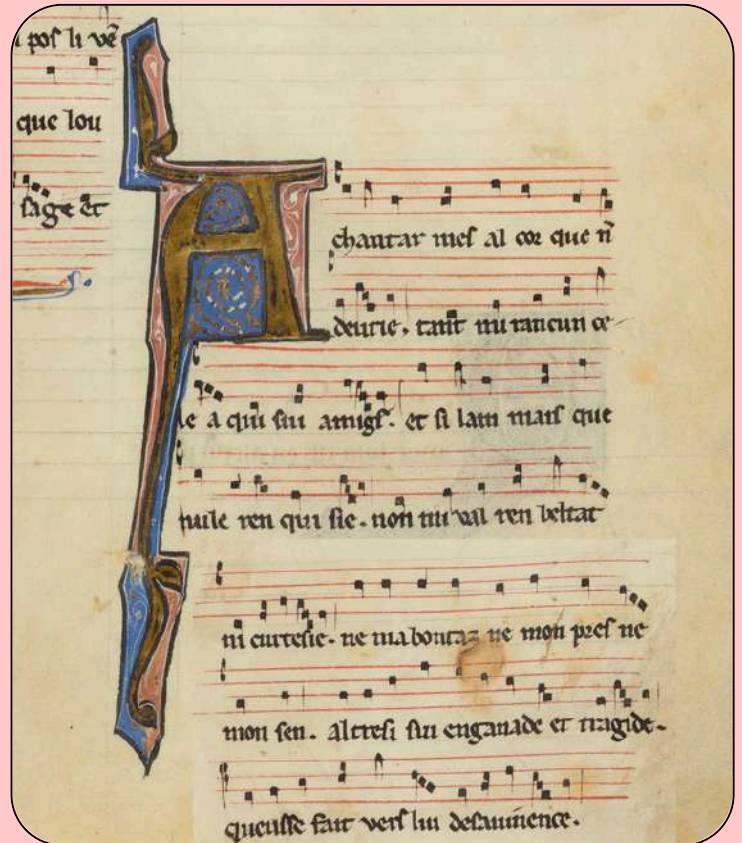 pos li ue̅
que lou
sage et
A chantar mes al cor que n̅
deurie. tant mi rancun ce
le a qui sui amigs. et si lam mais que
nuile ren qui sie. non mi val ren beltat
ni curtesie. ne ma bontaz ne mon pres ne
mon sen. altresi sui enganade et tragide.
queusse fait vers lui desauinence.